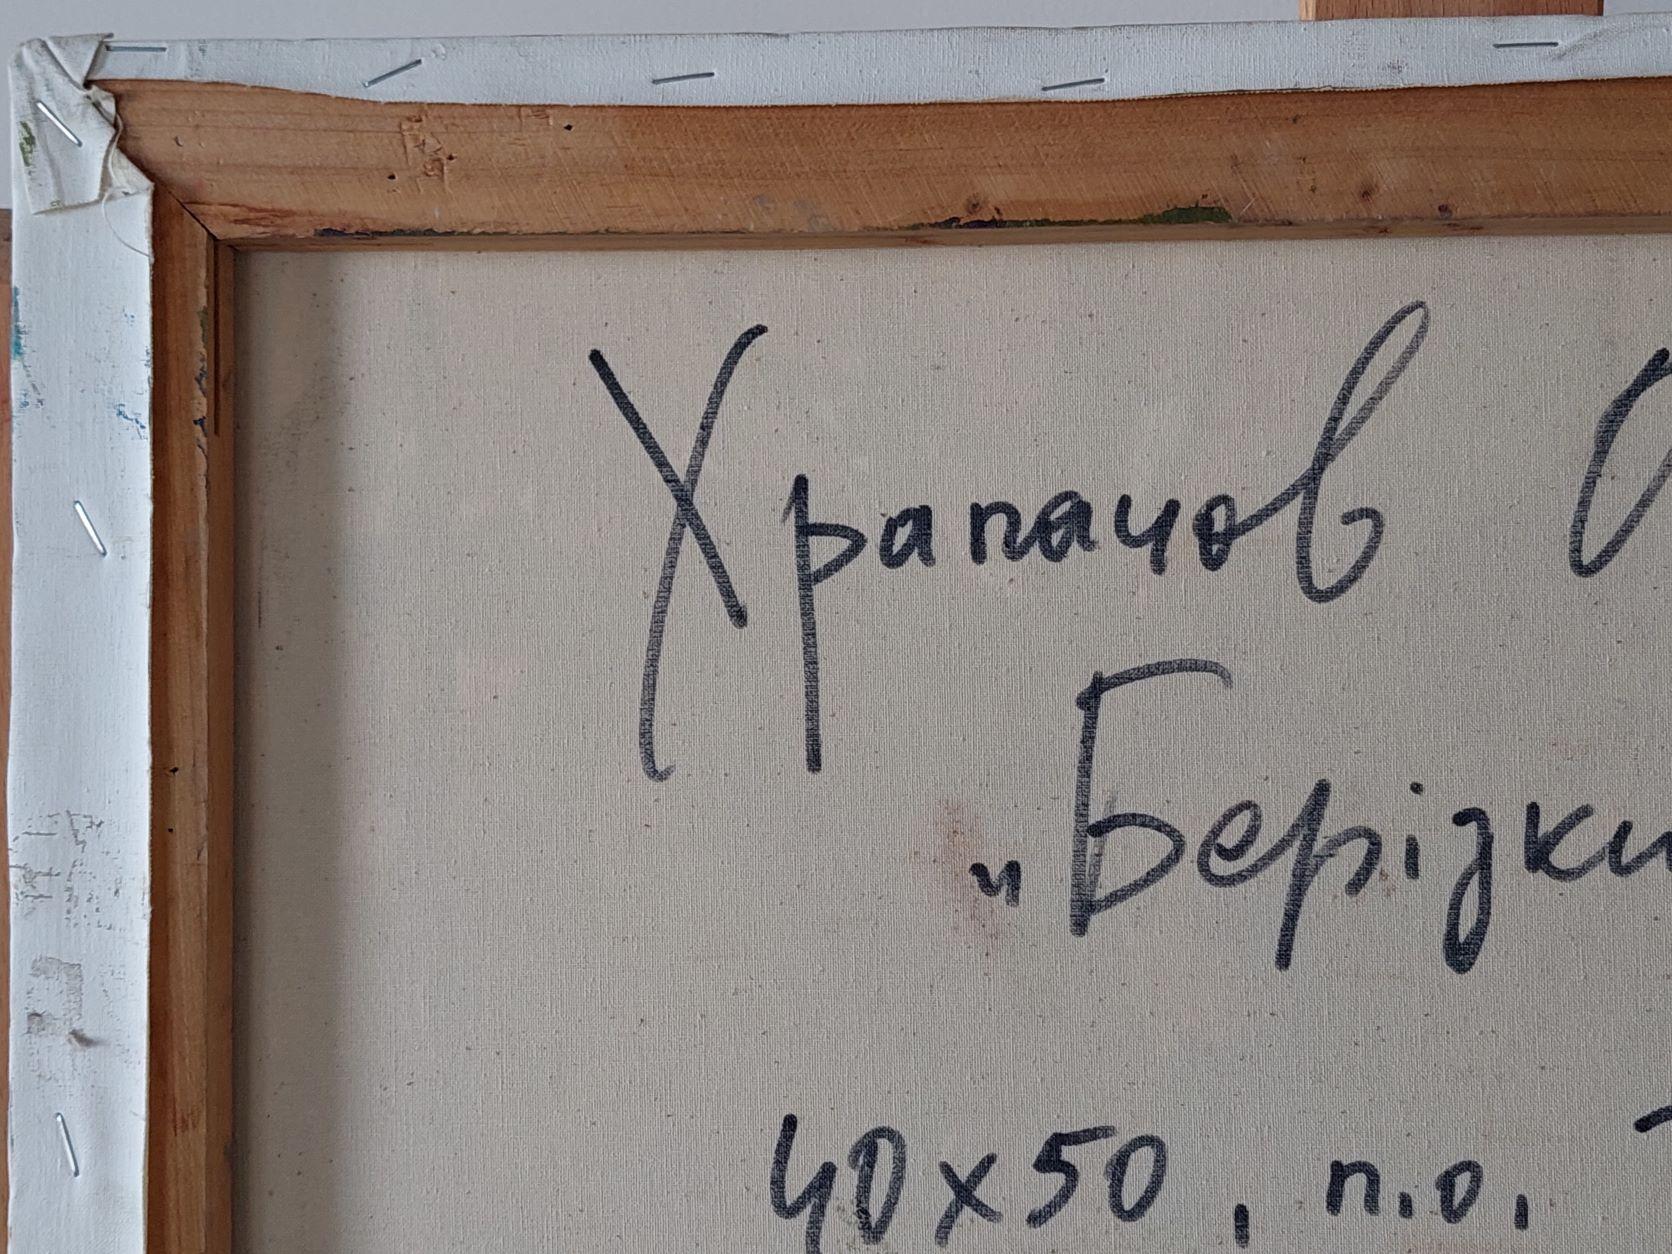 Храпачов О
„Берізки
40х50, п.о.